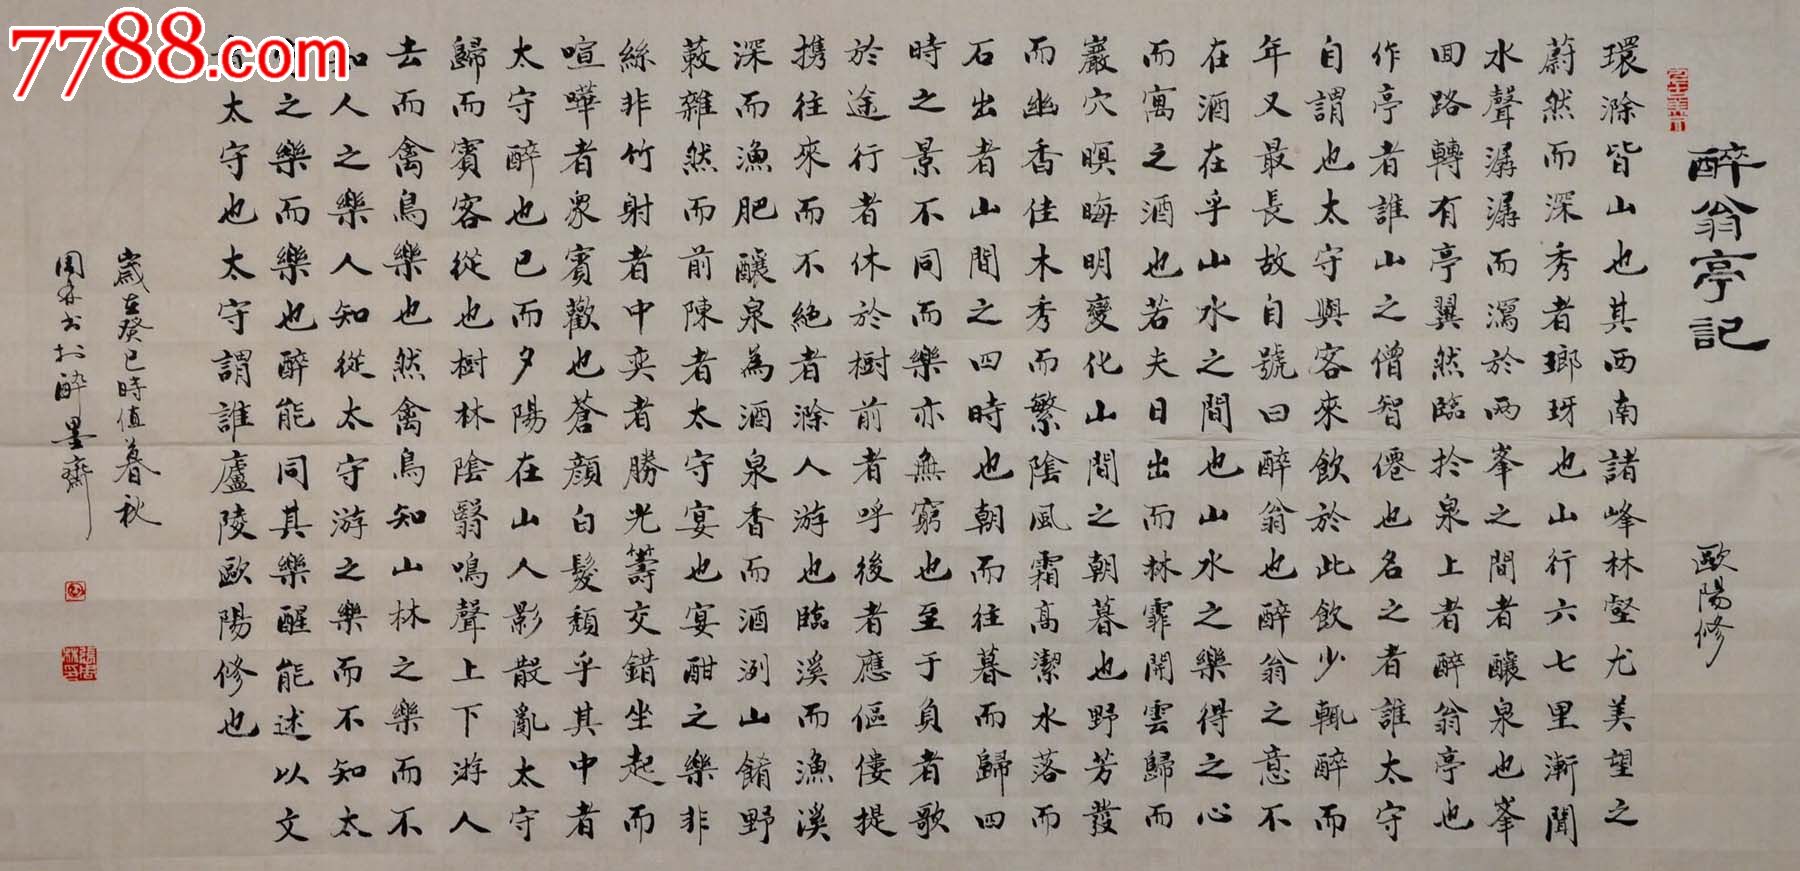 7788.com
醉翁亭記
歐陽修
環滁皆山也其西南諸峰林壑尤美望之
蔚然而深秀者瑯玡也山行六七里漸聞
水聲潺潺而瀉於兩峯之間者釀泉也峯
回路轉有亭翼然臨於泉上者醉翁亭也
作亭者誰山之僧智僊也名之者誰太守
自謂也太守與客來飲於此飲少輒醉而
年又最長故自號曰醉翁也醉翁之意不
在酒在乎山水之間也山水之樂得之心
而寓之酒也若夫日出而林霏開雲歸而
巖穴暝晦明變化山間之朝暮也野芳發
而幽香佳木秀而繁陰風霜高潔水落而
石出者山間之四時也朝而往暮而歸四
時之景不同而樂亦無窮也至于負者歌
於途行者休於樹前者呼後者應傴僂提
携往來而不絕者滁人游也臨溪而漁溪
深而漁肥釀泉為酒泉香而酒洌山餚野
蔌雜然而前陳者太守宴也宴酣之樂非
絲非竹射者中奕者勝光籌交錯坐起而
喧嘩者眾賓歡也蒼顏白髮頹乎其中者
太守醉也已而夕陽在山人影散亂太守
歸而賓客從也樹林陰翳鳴聲上下游人
去而禽鳥樂也然禽鳥知山林之樂而不
知人之樂人知從太守游之樂而不知太
守之樂而樂也醉能同其樂醒能述以文
者太守也太守謂誰廬陵歐陽修也
歲在癸巳時值暮秋
周林書於醉墨齋